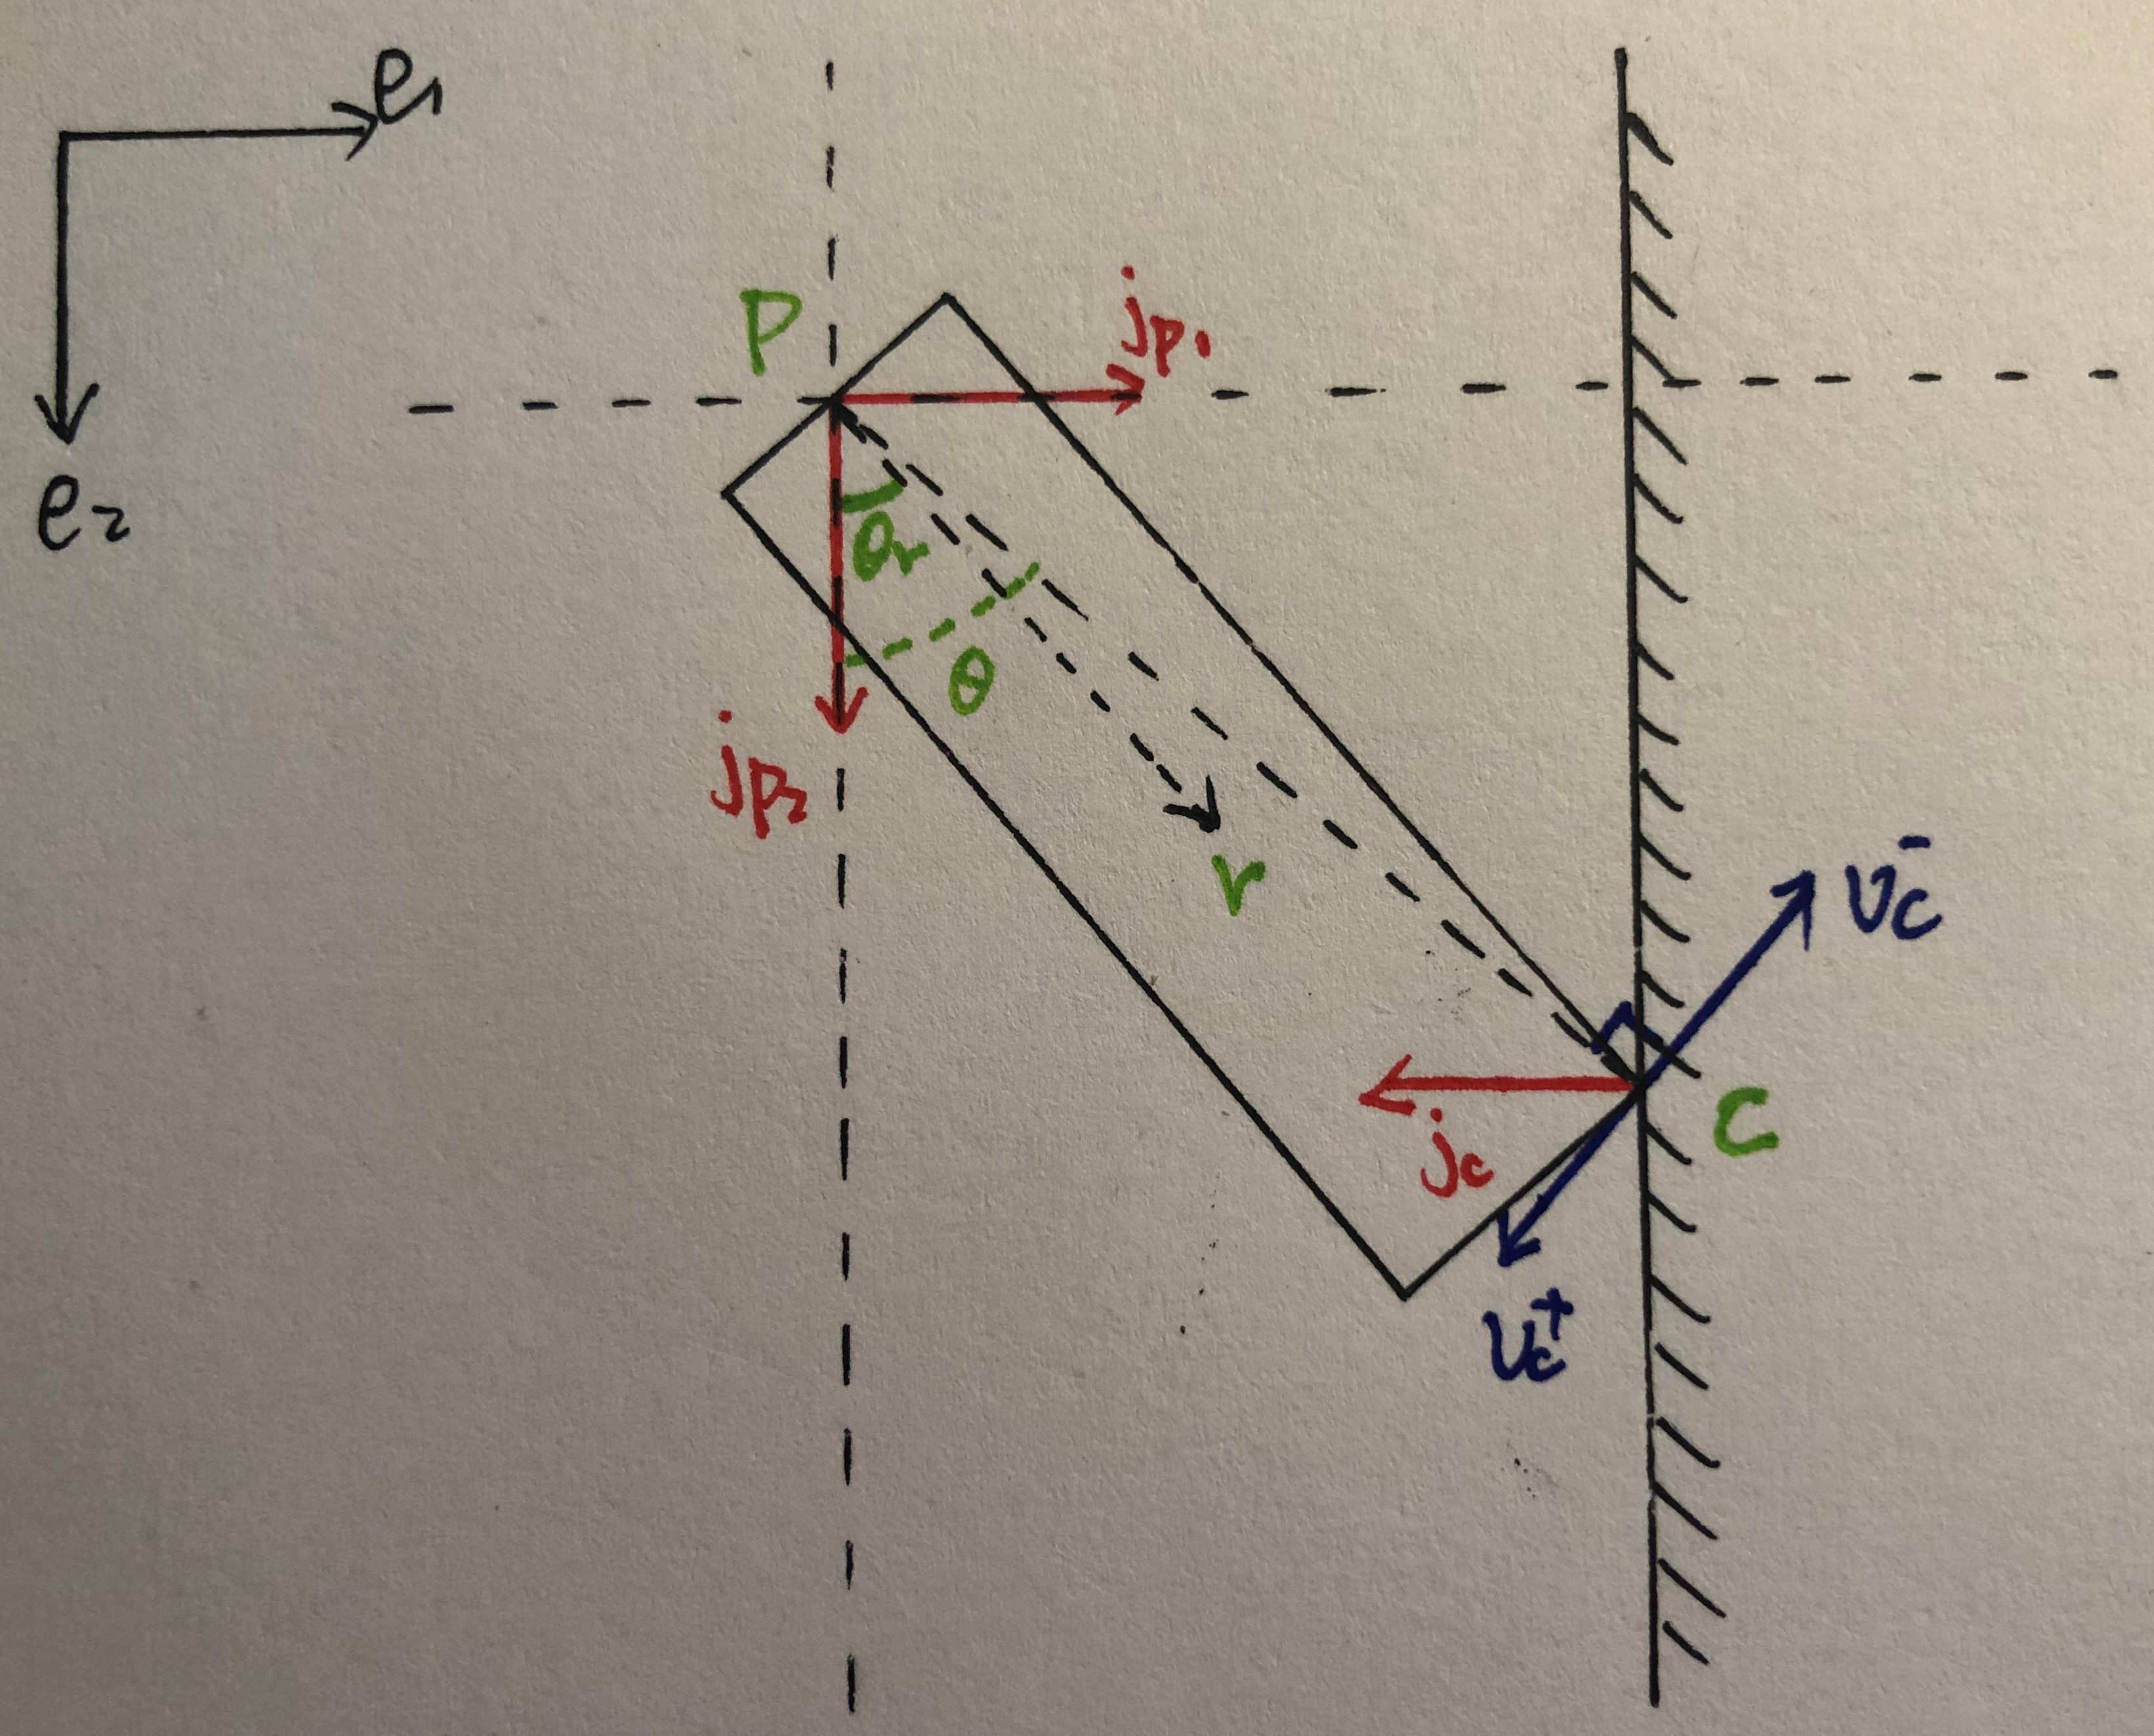 e₁
e₂
P
jp₁
θr
θ
jp₂
r
vc⁻
jc
C
vc⁺